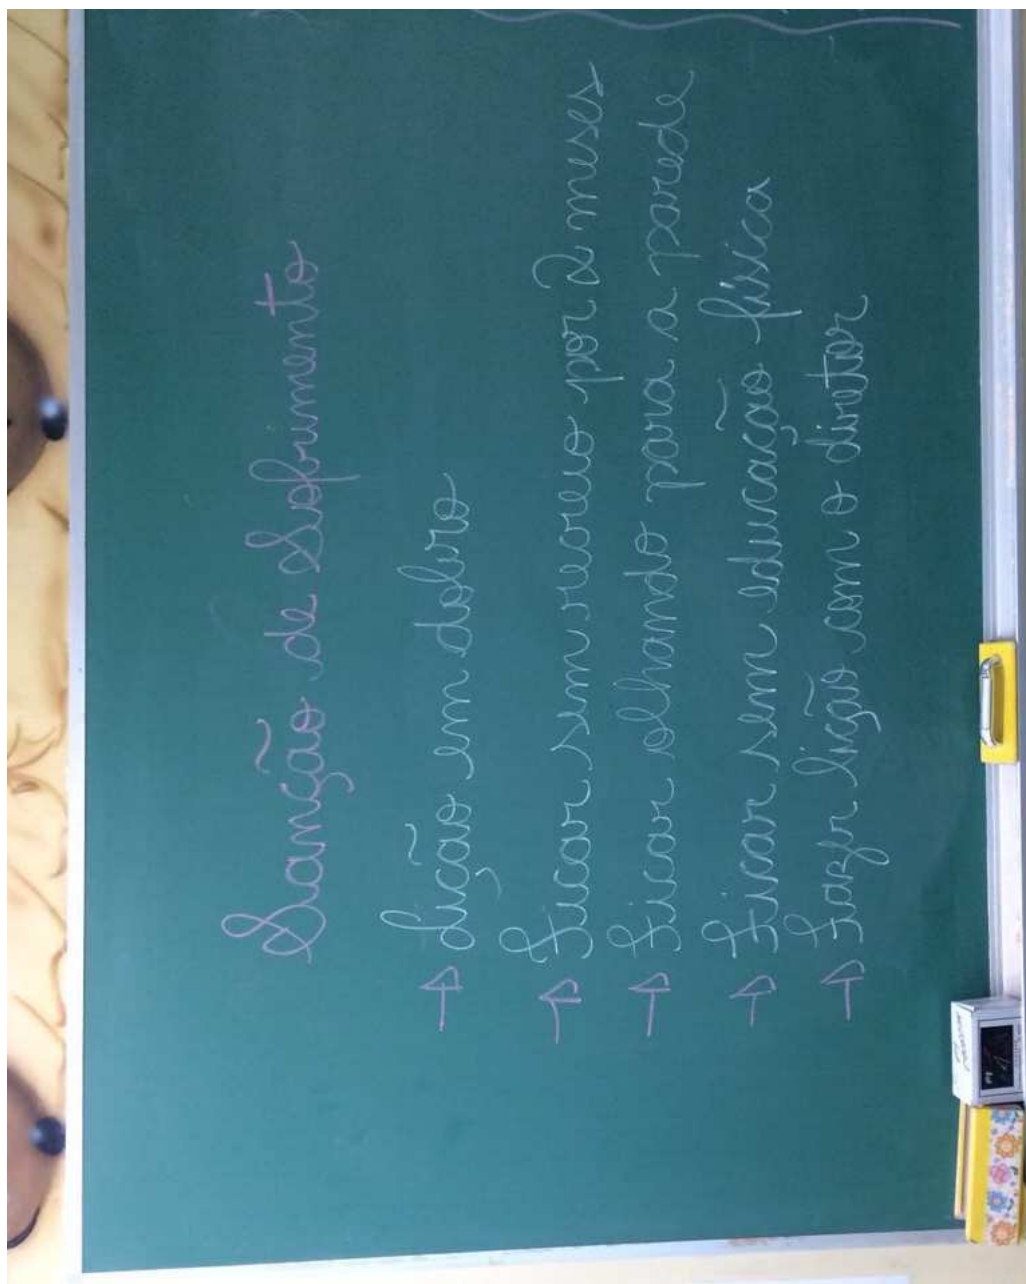 Sanção de Sofrimento
→ Lição em dobro
→ Ficar sem recreio por 2 meses
→ Ficar olhando para a parede
→ Ficar sem educação física
→ Fazer lição com o diretor